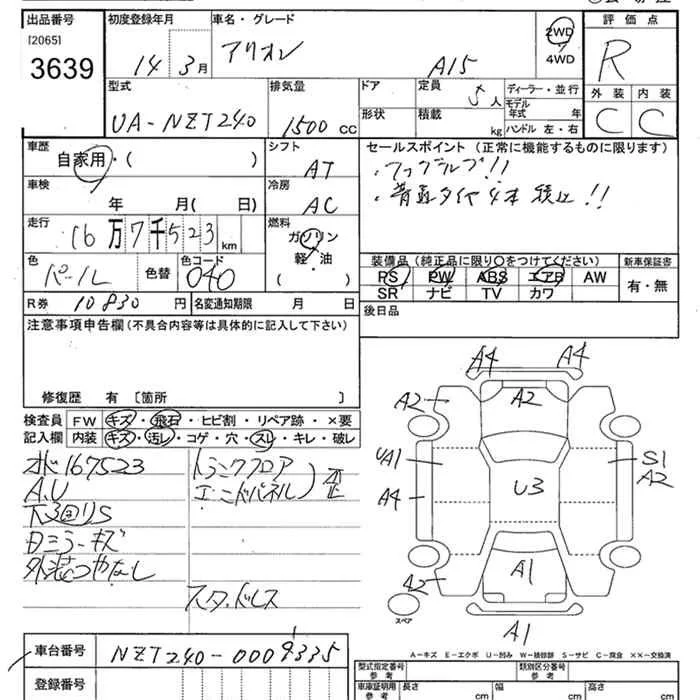 出品番号 初度登録年月 車名・グレード 評価点
[2065]
3639
14 3月 アリオン A15 2WD 4WD R
型式 排気量 ドア 定員 ディーラー・並行 外装 内装
UA-NZT240 1500CC 5人 モデル年式 年 C C
形状 積載 kg ハンドル 左・右
車歴 シフト セールスポイント (正常に機能するものに限ります)
自家用・( ) AT ・ワンオーナー!!
車検 冷房
年 月( 日) AC
走行 燃料
16万7千523km ガソリン
軽・油
( )
色 色替 色コード 装備品 (純正品に限り〇をつけてください) 新車保証書
パール 040 PS PW ABS エアB AW 有・無
SR ナビ TV カワ
R券 10830円 名変通知期限 月 日 後日品
注意事項申告欄 (不具合内容等は具体的に記入して下さい)
修復歴 有 [箇所 ]
検査員 FW キズ・飛石・ヒビ割・リペア跡・×要
記入欄 内装 キズ・汚レ・コゲ・穴・スレ・キレ・破レ
167523 トランクフロア
A.U エンドパネル
下回りS
Dミラーキズ
外装つやなし
スタッドレス
A4 A4
A2 A2
UA1 S1
A2
A4 U3
A2 A1
スペア
A1
A-キズ E-エクボ U-凹み W-補修跡 S-サビ C-腐食 ××-交換済
車台番号 NZT240-0009335
型式指定番号 参考 類別区分番号 参考
登録番号 車庫証明用 参考 長さ cm 幅 cm 高さ cm